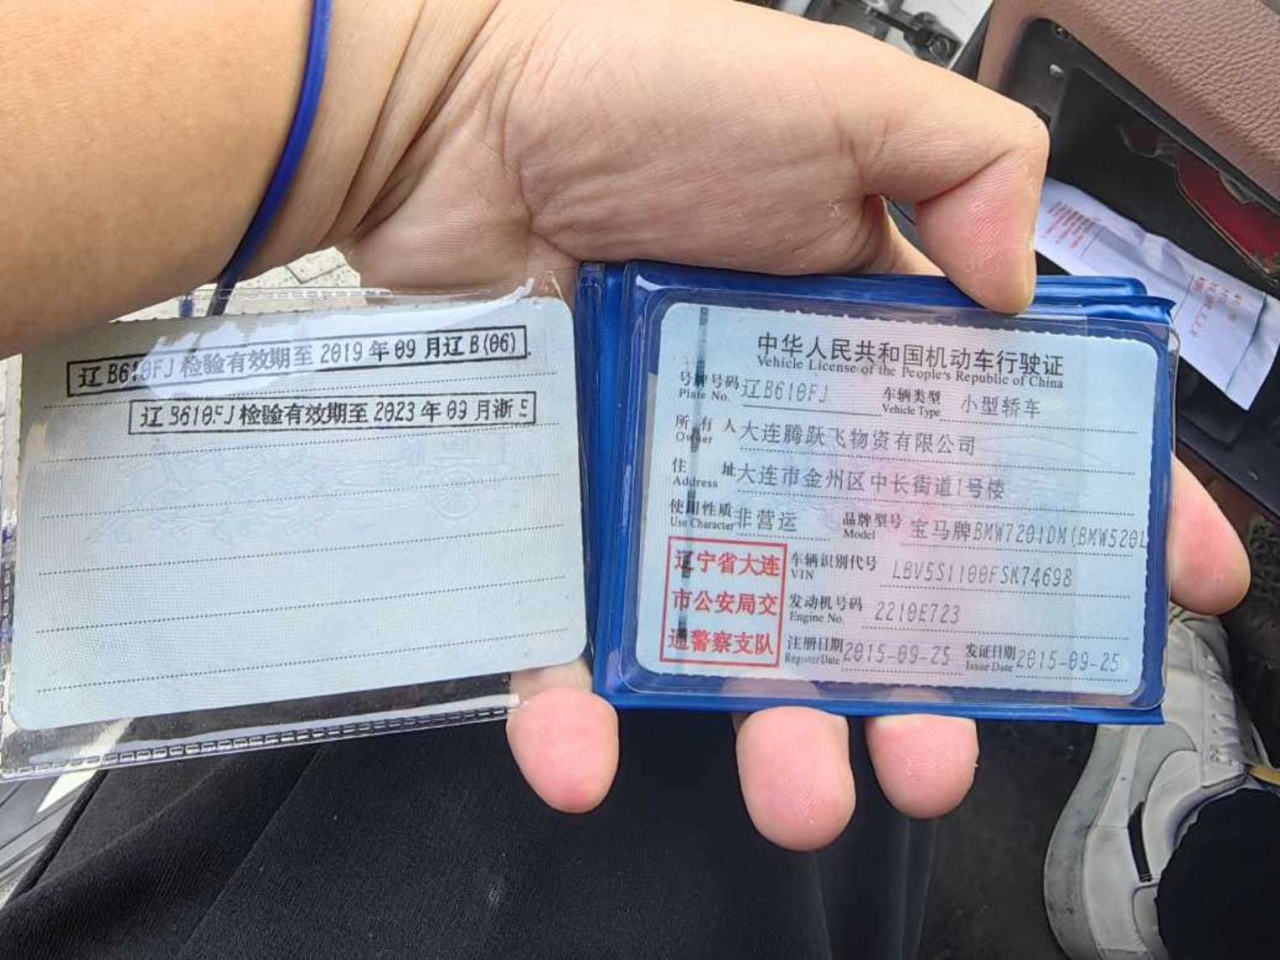 辽B610FJ 检验有效期至 2019年09月辽B(06)
辽B610FJ 检验有效期至 2023年09月浙
中华人民共和国机动车行驶证
Vehicle License of the People's Republic of China
号牌号码 辽B610FJ 车辆类型 小型轿车
Plate No. Vehicle Type
所有人 大连腾跃飞物资有限公司
Owner
住址 大连市金州区中长街道1号楼
Address
使用性质 非营运 品牌型号 宝马牌BMW7201DM(BMW520L
Use Character Model
辽宁省大连
市公安局交
通警察支队
车辆识别代号 LBV5S1100FSK74698
VIN
发动机号码 2210E723
Engine No.
注册日期 2015-09-25 发证日期 2015-09-25
Register Date Issue Date